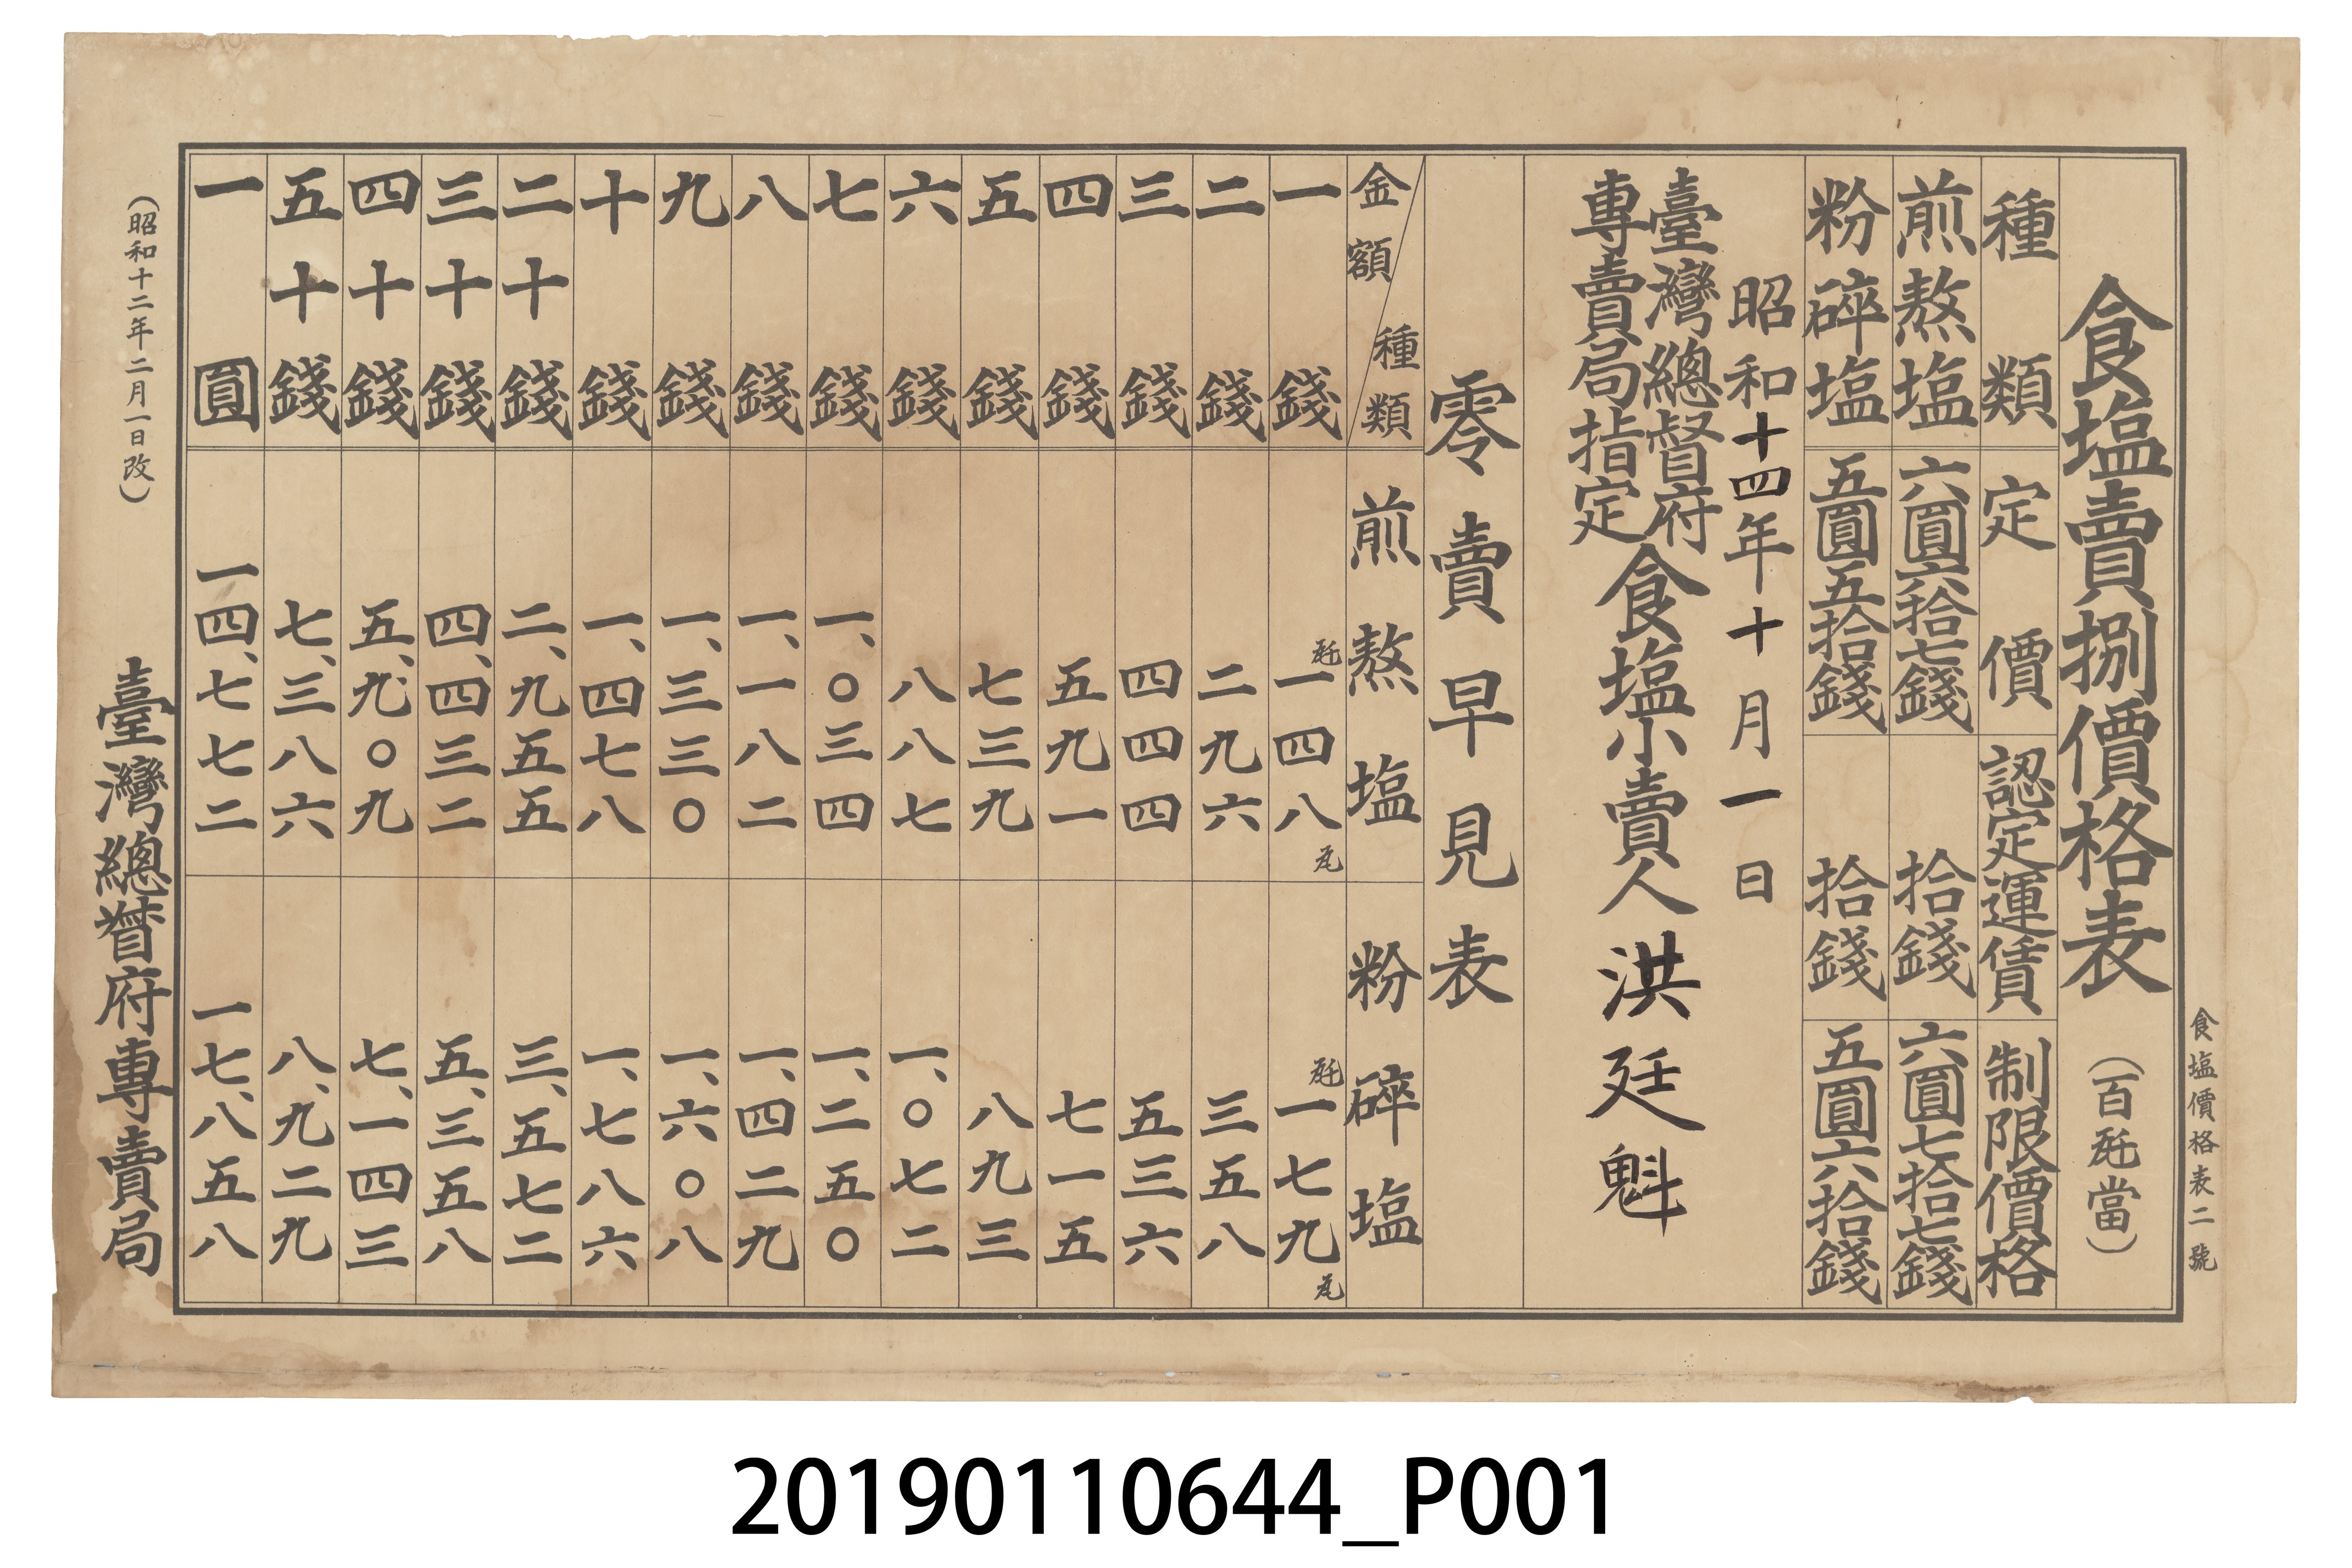 食塩價格表二號
食塩賣捌價格表（百瓩當）
種類 定價 認定運賃 制限價格
煎熬塩 六圓六拾七錢 拾錢 六圓七拾七錢
粉碎塩 五圓五拾錢 拾錢 五圓六拾錢
昭和十四年十月一日
臺灣總督府
專賣局指定
食塩小賣人 洪廷魁
零賣早見表
金額 種類 煎熬塩 粉碎塩
一錢 瓩一四八瓦 瓩一七九瓦
二錢 二九六 三五八
三錢 四四四 五三六
四錢 五九一 七一五
五錢 七三九 八九三
六錢 八八七 一、〇七二
七錢 一、〇三四 一、二五〇
八錢 一、一八二 一、四二九
九錢 一、三三〇 一、六〇八
十錢 一、四七八 一、七八六
二十錢 二、九五五 三、五七二
三十錢 四、四三二 五、三五八
四十錢 五、九〇九 七、一四三
五十錢 七、三八六 八、九二九
一圓 一四、七七二 一七、八五八
（昭和十二年二月一日改）
臺灣總督府專賣局
20190110644_P001